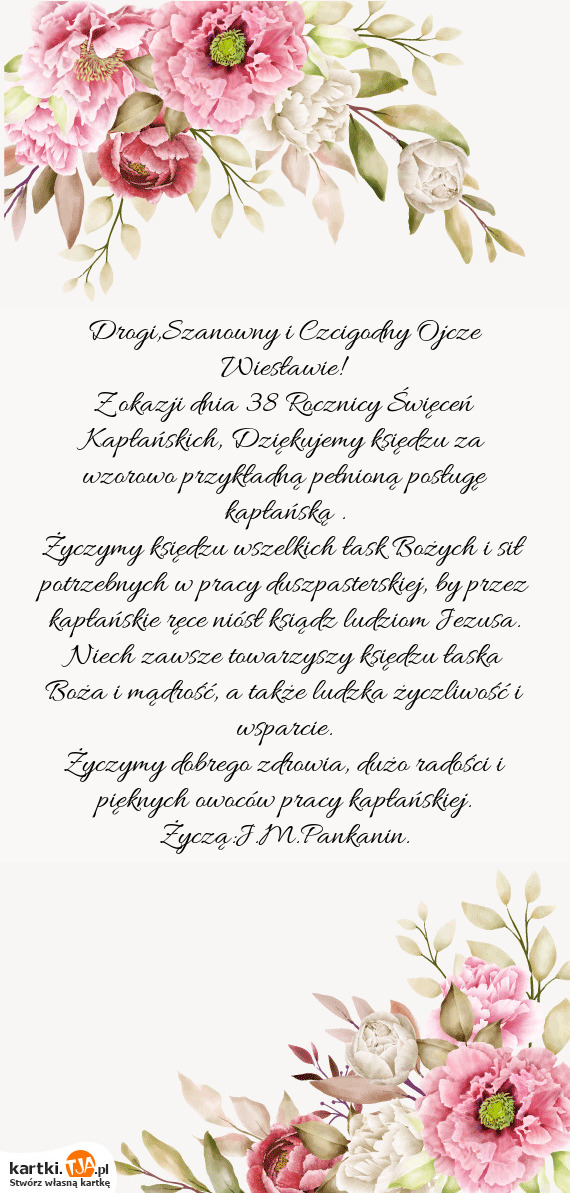 Drogi,Szanowny i Czcigodny Ojcze
Wiesławie!
Z okazji dnia 38 Rocznicy Święceń
Kapłańskich, Dziękujemy księdzu za
wzorowo przykładną pełnioną posługę
kapłańską .
Życzymy księdzu wszelkich łask Bożych i sił
potrzebnych w pracy duszpasterskiej, by przez
kapłańskie ręce niósł ksiądz ludziom Jezusa.
Niech zawsze towarzyszy księdzu łaska
Boża i mądrość, a także ludzka życzliwość i
wsparcie.
Życzymy dobrego zdrowia, dużo radości i
pięknych owoców pracy kapłańskiej.
Życzą:J.M.Pankanin.
kartki.TJA.pl
Stwórz własną kartkę